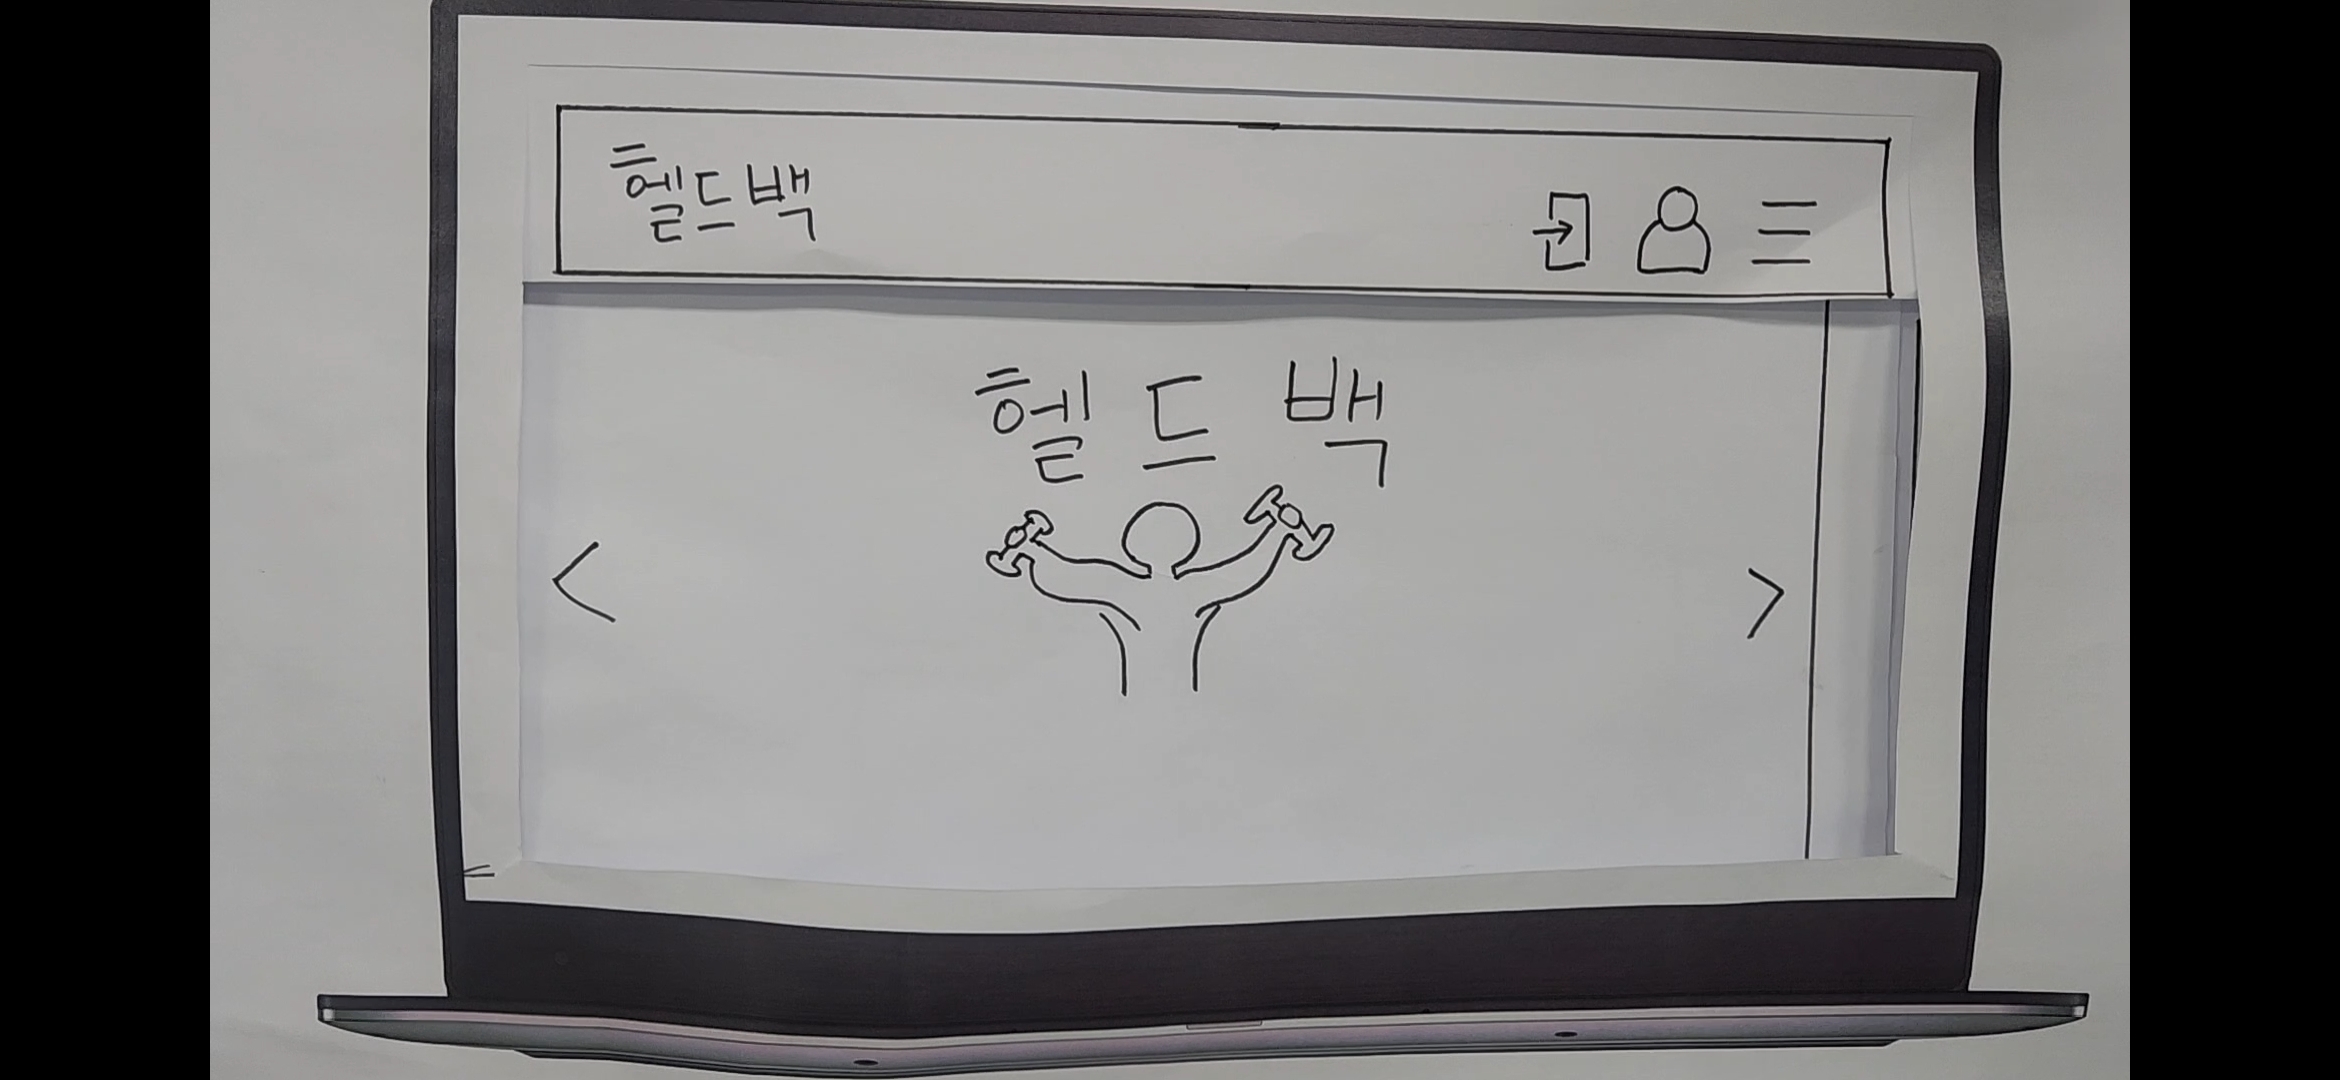 헬드백
헬드백